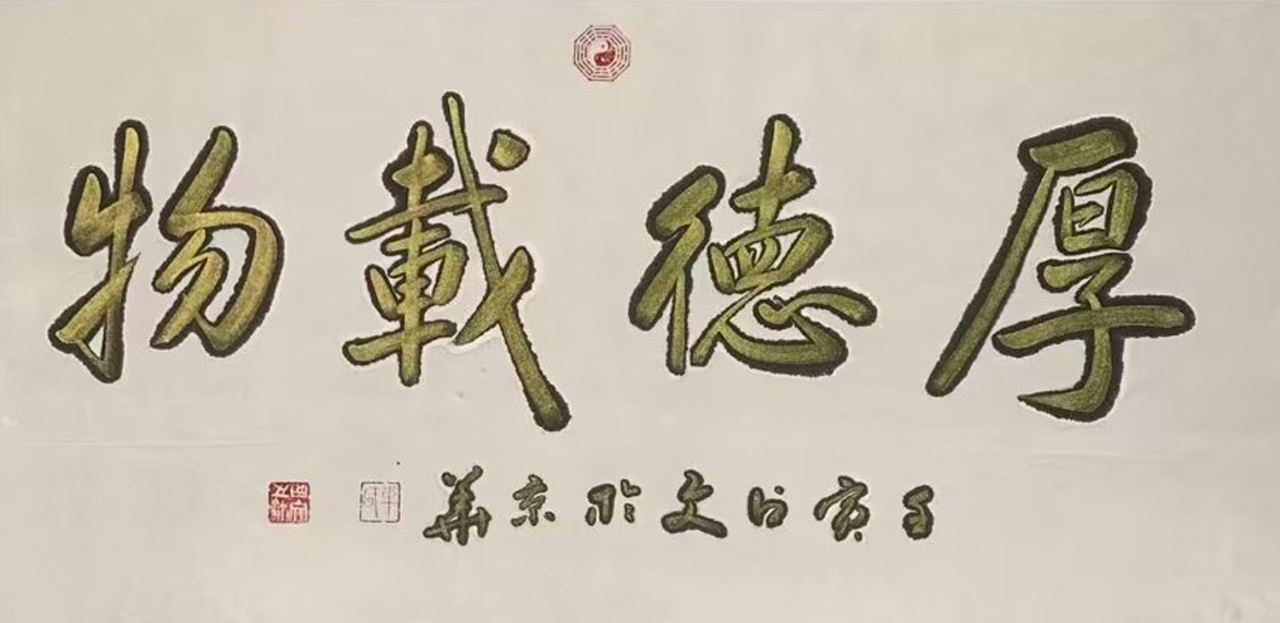 厚德載物
寅文於京華